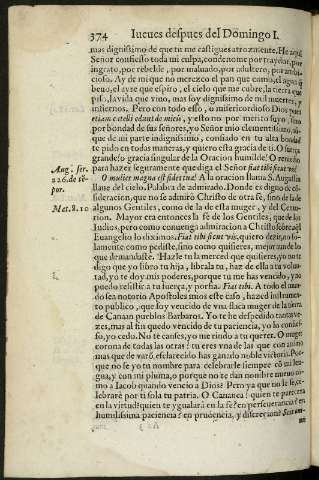 374 Iueues despues del Domingo I.
mas dignissimo de que tu me castigues atrozmente. He aqui
Señor confiesso toda mi culpa, condenome por traydor, por
ingrato, por rebelde, por maluado, por adultero, por ambi-
cioso. Ay de mi que no merezco el pan que como, el agua q̃
beuo, el ayre que espiro, el cielo que me cubre, la tierra que
piso, la vida que viuo, mas soy dignissimo de mil muertes, y
infiernos. Pero con todo esso, o misericordioso Dios
etiam catelli edunt de micis, y esto no por merito suyo, sino
por bondad de sus señores, yo Señor mio clementissimo, aũ-
que de mi parte indignissimo, confiado en tu alta bondad
te pido en todas maneras, y quiero esta gracia de ti. O fuerça
grande! o gracia singular de la Oracion humilde! O remedio
para hazer seguramente que diga el Señor fiat tibi sicut vis!
Aug. ser.
226. de tẽ-
por.
O mulier magna est fides tua! A la oracion llama S. Augustin
llaue del cielo. Palabra de admirado. Donde es digno de cõ-
sideracion, que no se admirò Christo de otra fè, sino de la de
Mat. 8. 10
algunos Gentiles, como de la de esta muger, y del Centu-
rion. Mayor era entonces la fè de los Gentiles, que de los
Iudios, pero como conuenga admiracion a Christo sobre el
Euangelio lo diximos. Fiat tibi sicut vis, quiere dezir, no so-
lamente como pediste, sino como quieres, mejorando lo
que demandaste. Hazle tu la merced que quisieres, yo no te
digo que yo libro tu hija, librala tu, haz de ella a tu volun-
tad, yo te doy mis poderes, porque tu me has vencido, y no
puedo resistir a tu fuerça, y porfia. Fiat tibi. A todo el mun-
do sea notorio Apostoles mios este caso, hazed instrumen-
to publico, que soy vencido de vna flaca muger de la tierra
de Canaan pueblos Barbaros. Yo te he despedido tantas ve-
zes, mas al fin quedo vencido de tu paciencia, yo lo confies-
so, yo cedo. No te canses, yo me rindo a tu querer. O muger
corona de todas las otras! tu eres vna de las que con animo
mas que de varõ, esclarecido has ganado noble vitoria. Por-
que no se yo tu nombre para celebrarle siempre cõ mi len-
gua, y con mi pluma, o porque no te dan nombre nueuo co-
mo a Iacob quando vencio a Dios? Pero ya que no le se, ce-
lebrarè por ti sola tu patria. O Cananea! quien te parecera
en la virtud! quien te ygualarà en la fe? en perseuerancia? en
humilissima paciencia? en prudencia, y discrecion?